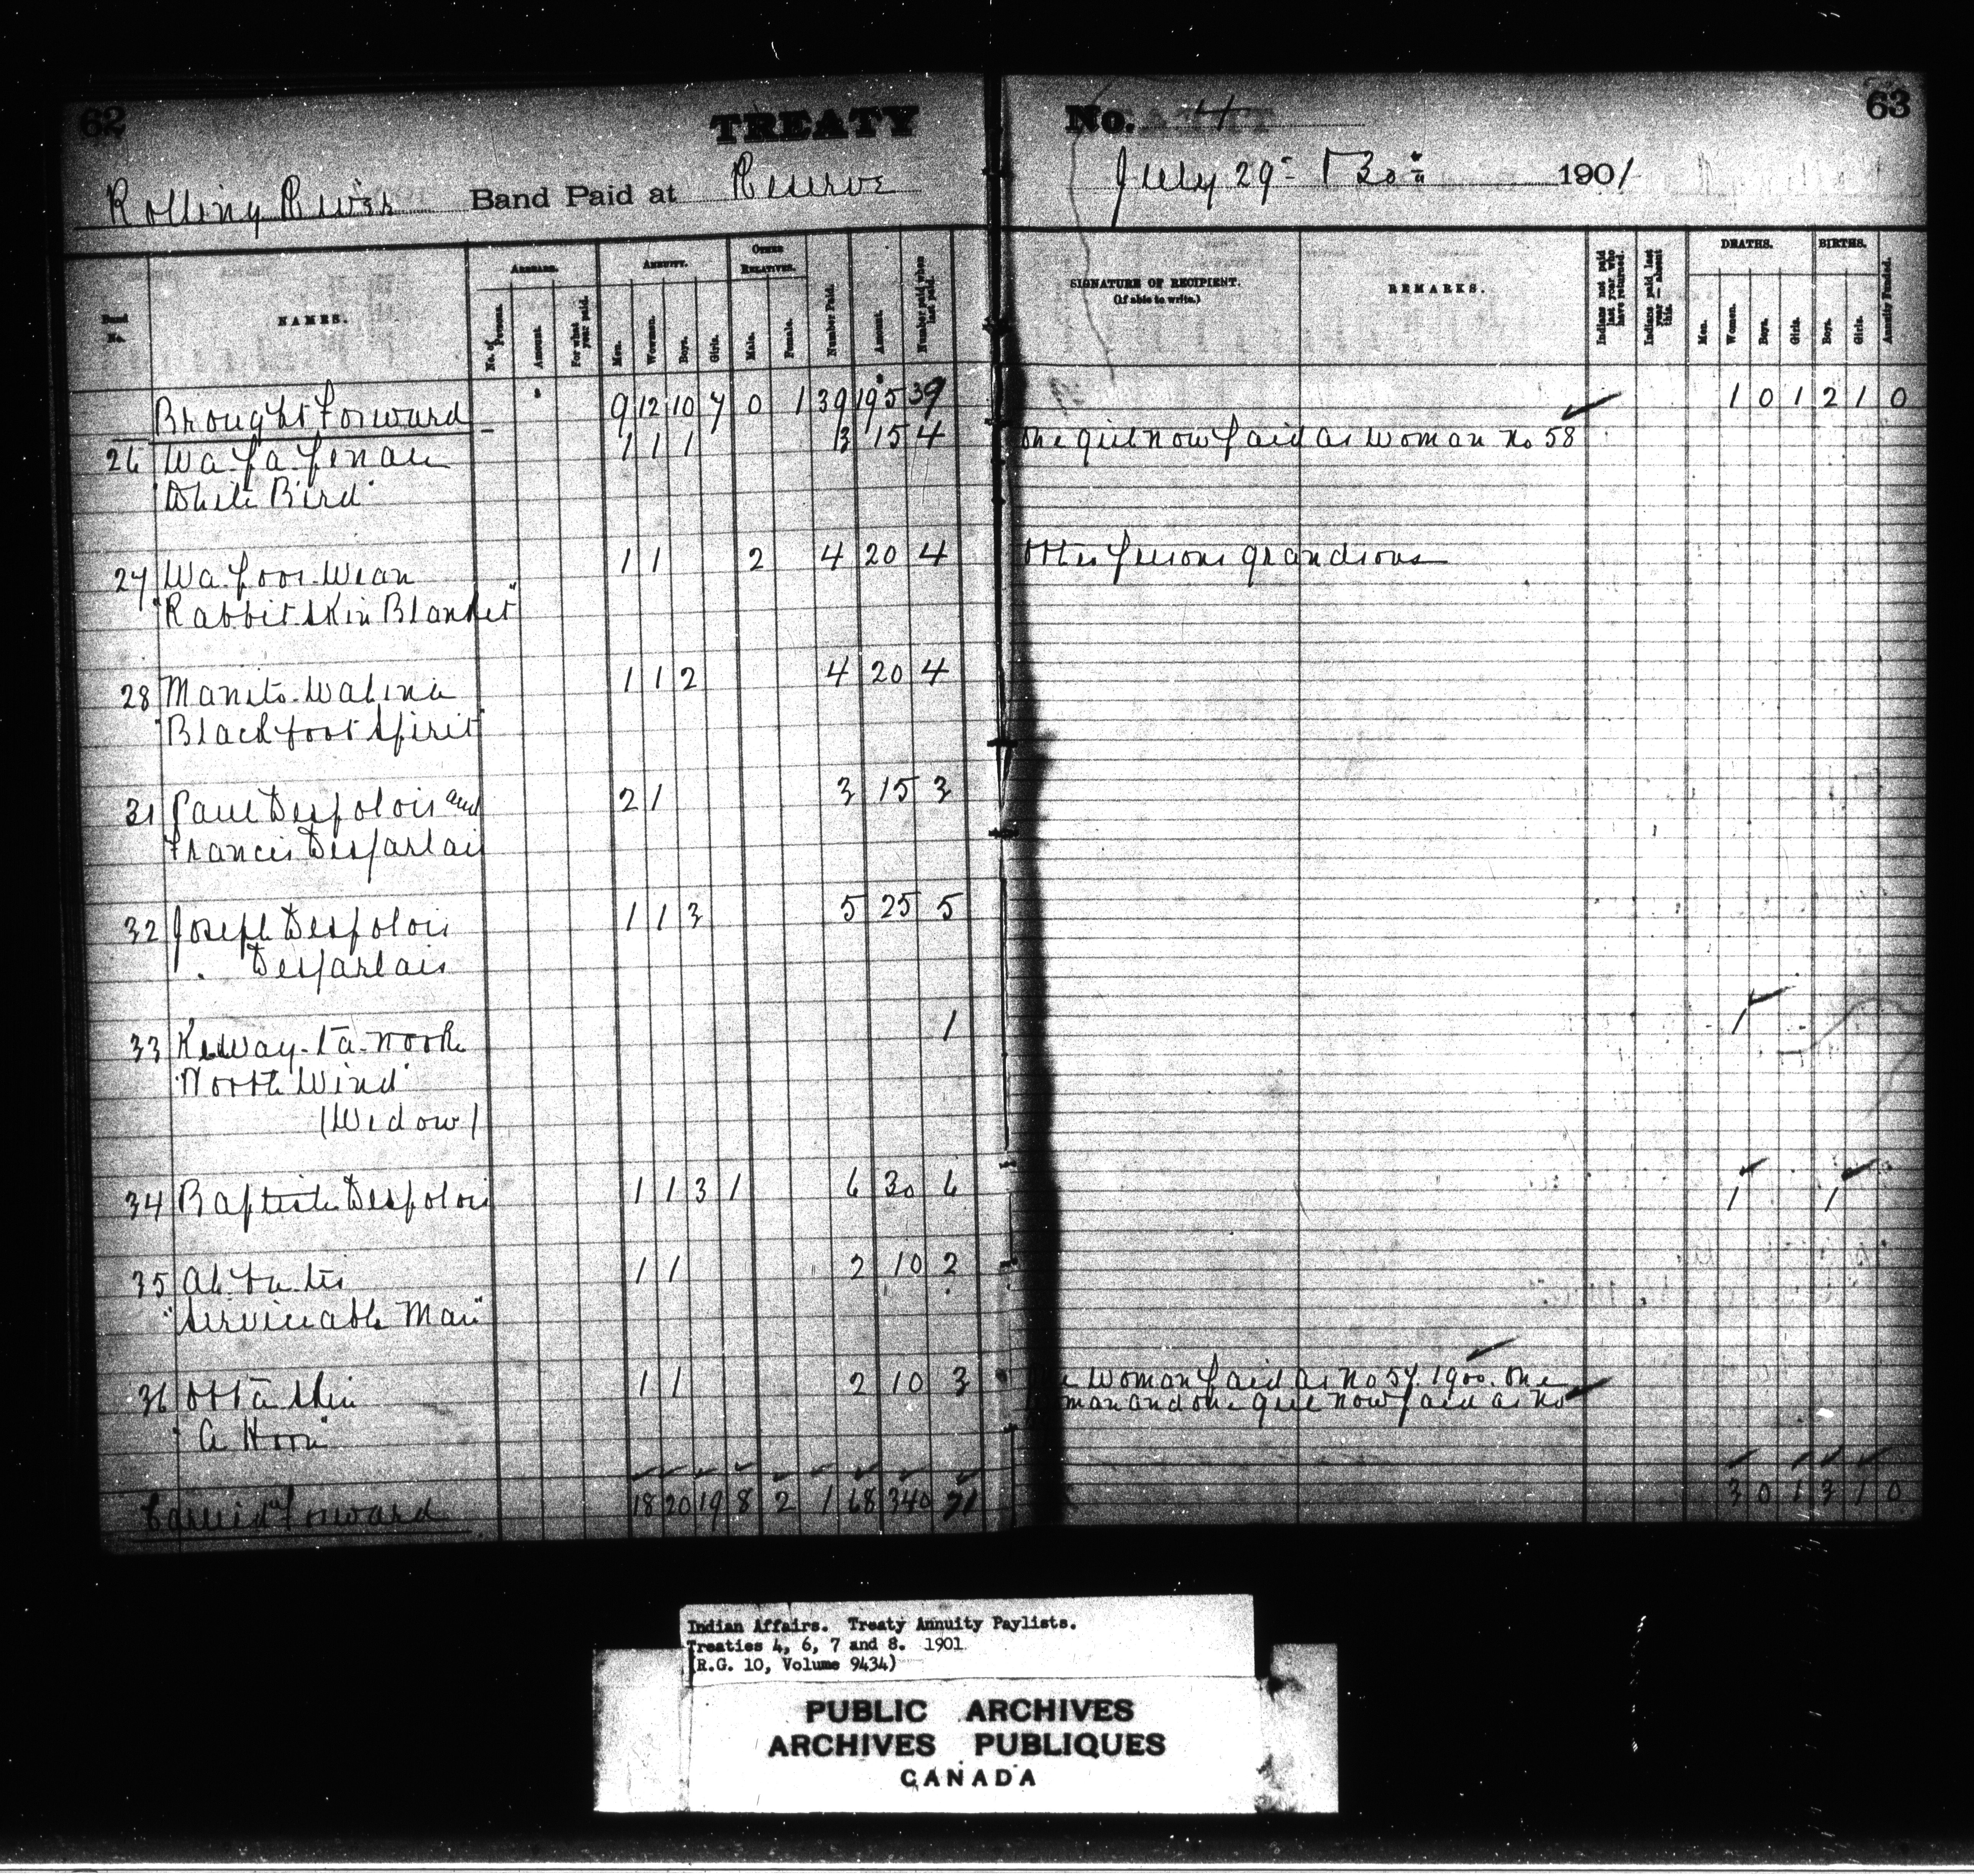 62
TREATY
No. 4
63
Rolling River Band Paid at Reserve
July 29th & 30th 1901
Band No.
NAMES.
ARREARS.
No. of Persons.
Amount.
For what year paid.
ANNUITY.
Men.
Women.
Boys.
Girls.
OTHER RELATIVES.
Male.
Female.
Number Paid.
Amount.
Number paid when last paid.
SIGNATURE OF RECIPIENT.
(If able to write.)
REMARKS.
Indians not paid last year who have returned.
Indians paid last year — absent this.
DEATHS.
Men.
Women.
Boys.
Girls.
BIRTHS.
Boys.
Girls.
Annuity Funded.
Brought Forward 9 12 10 7 0 1 39 195 39 1 0 1 2 1 0
26 Wa-pa-penace 1 1 1 3 15 4 One girl now paid as woman no 58
"White Bird"
27 Wa-poos-wean 1 1 2 4 20 4 Other persons grandsons
"Rabbit skin Blanket"
28 Manito-wabina 1 1 2 4 20 4
"Blackfoot Spirit"
31 Paul Despolois and 2 1 3 15 3
Francis Desjarlais
32 Joseph Despolois 1 1 3 5 25 5
" Desjarlais
33 Keway-ta-nook 1 1
"North Wind"
(Widow)
34 Baptiste Despolois 1 1 3 1 6 30 6 1 1
35 1 1 2 10 2
"Serviceable Man"
36 Otta skin 1 1 2 10 3 woman paid as No 57 1900. One
"A Horn" man and one girl now paid as No
Carried Forward 18 20 19 8 2 1 68 340 71 3 0 1 3 1 0
Indian Affairs. Treaty Annuity Paylists.
Treaties 4, 6, 7 and 8. 1901
(R.G. 10, Volume 9434)
PUBLIC ARCHIVES
ARCHIVES PUBLIQUES
CANADA